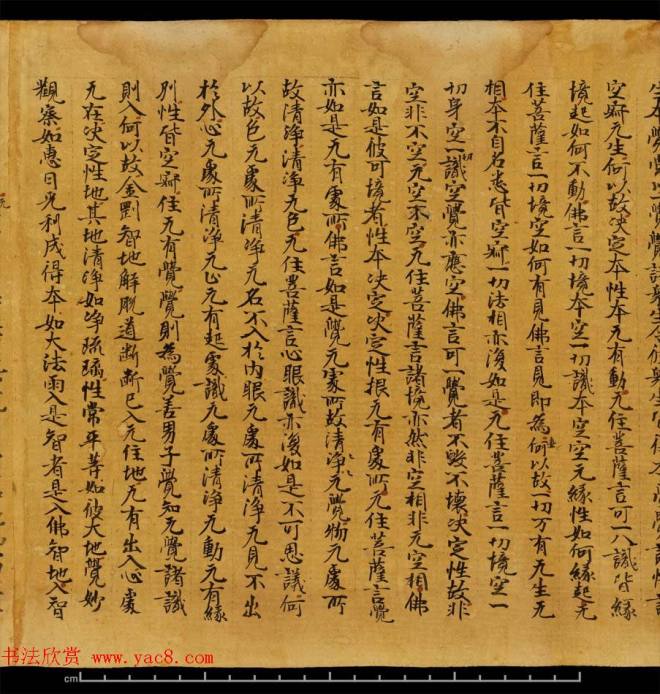 空寂无生何以故决定本性本无有動无住菩薩言可一八識皆緣
境起如何不動佛言一切境本空一切識本空空无緣性如何緣起无
住菩薩言一切境空如何有見佛言見即為妄何以故一切万有无生无
相本不自名悉皆空寂一切法相亦復如是无住菩薩言一切境空一
切身空一切識空覺亦應空佛言可一覺者不毀不壞决定性故非
空非不空无空不空无住菩薩言諸境亦然非空相非无空相佛
言如是彼可境者性本决定决定性根无有處所无住菩薩言覺
亦如是无有處所佛言如是覺无處所故清淨无覺物无處所
故清淨清淨无色无住菩薩言心眼識亦復如是不可思議何
以故色无處所清淨无名不入於内眼无處所清淨无見不出
於外心无處所清淨无止无有起處識无處所清淨无動无有緣
別性皆空寂住无有覺覺則為覺善男子覺知无覺諸識
則入何以故金剛智地解脫道斷斷已入无住地无有出入心處
无在决定性地其地清淨如淨琉璃性常平等如彼大地覺妙
觀察如惠日光利成得本如大法雨入是智者是入佛智地入智
书法欣赏 www.yac8.com
cm